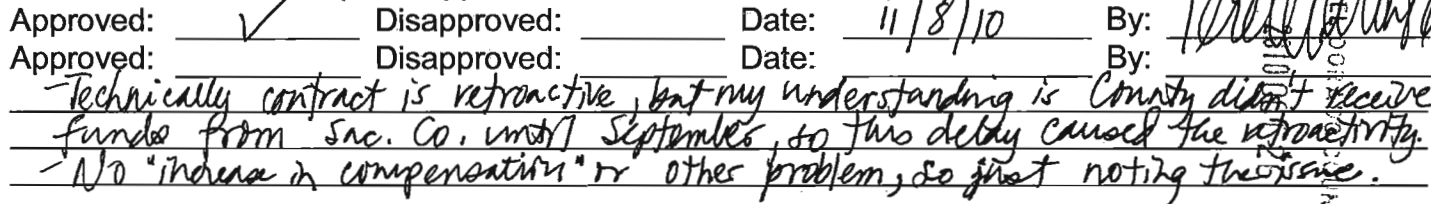 Approved: ✓ Disapproved: Date: 11/8/10 By:
Approved: Disapproved: Date: By:
-Technically contract is retroactive, but my understanding is County didn't receive
funds from Sac. Co. until September, so this delay caused the retroactivity.
- No "increase in compensation" or other problem, so just noting the issue.